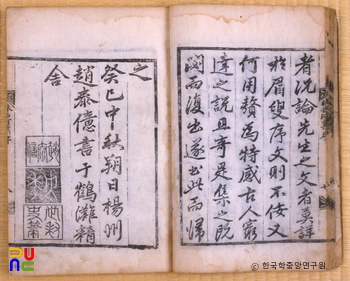 者況論先生之文者莫詳
於眉叟序文則不佞又
何用贅焉特感古人窮
達之說且奇是集之既
閟而復出遂書此而歸
之
癸巳中秋朔日楊州
趙泰億書于鶴灘精
舍
© 한국학중앙연구원